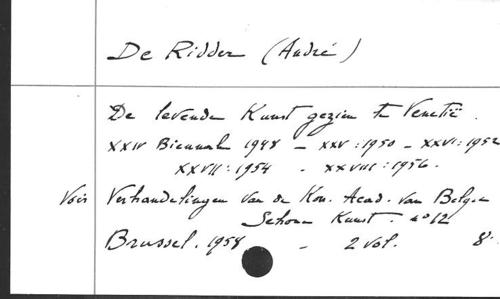 De Ridder (André)
De levende Kunst gezien te Venetië.
XXIV Biennale 1948 - XXV: 1950 - XXVI: 1952
XXVII: 1954 - XXVIII: 1956.
Voir Verhandelingen van de Kon. Acad. van Belgie
Schone Kunst - n° 12
Brussel. 1958 - 2 vol. 8°.